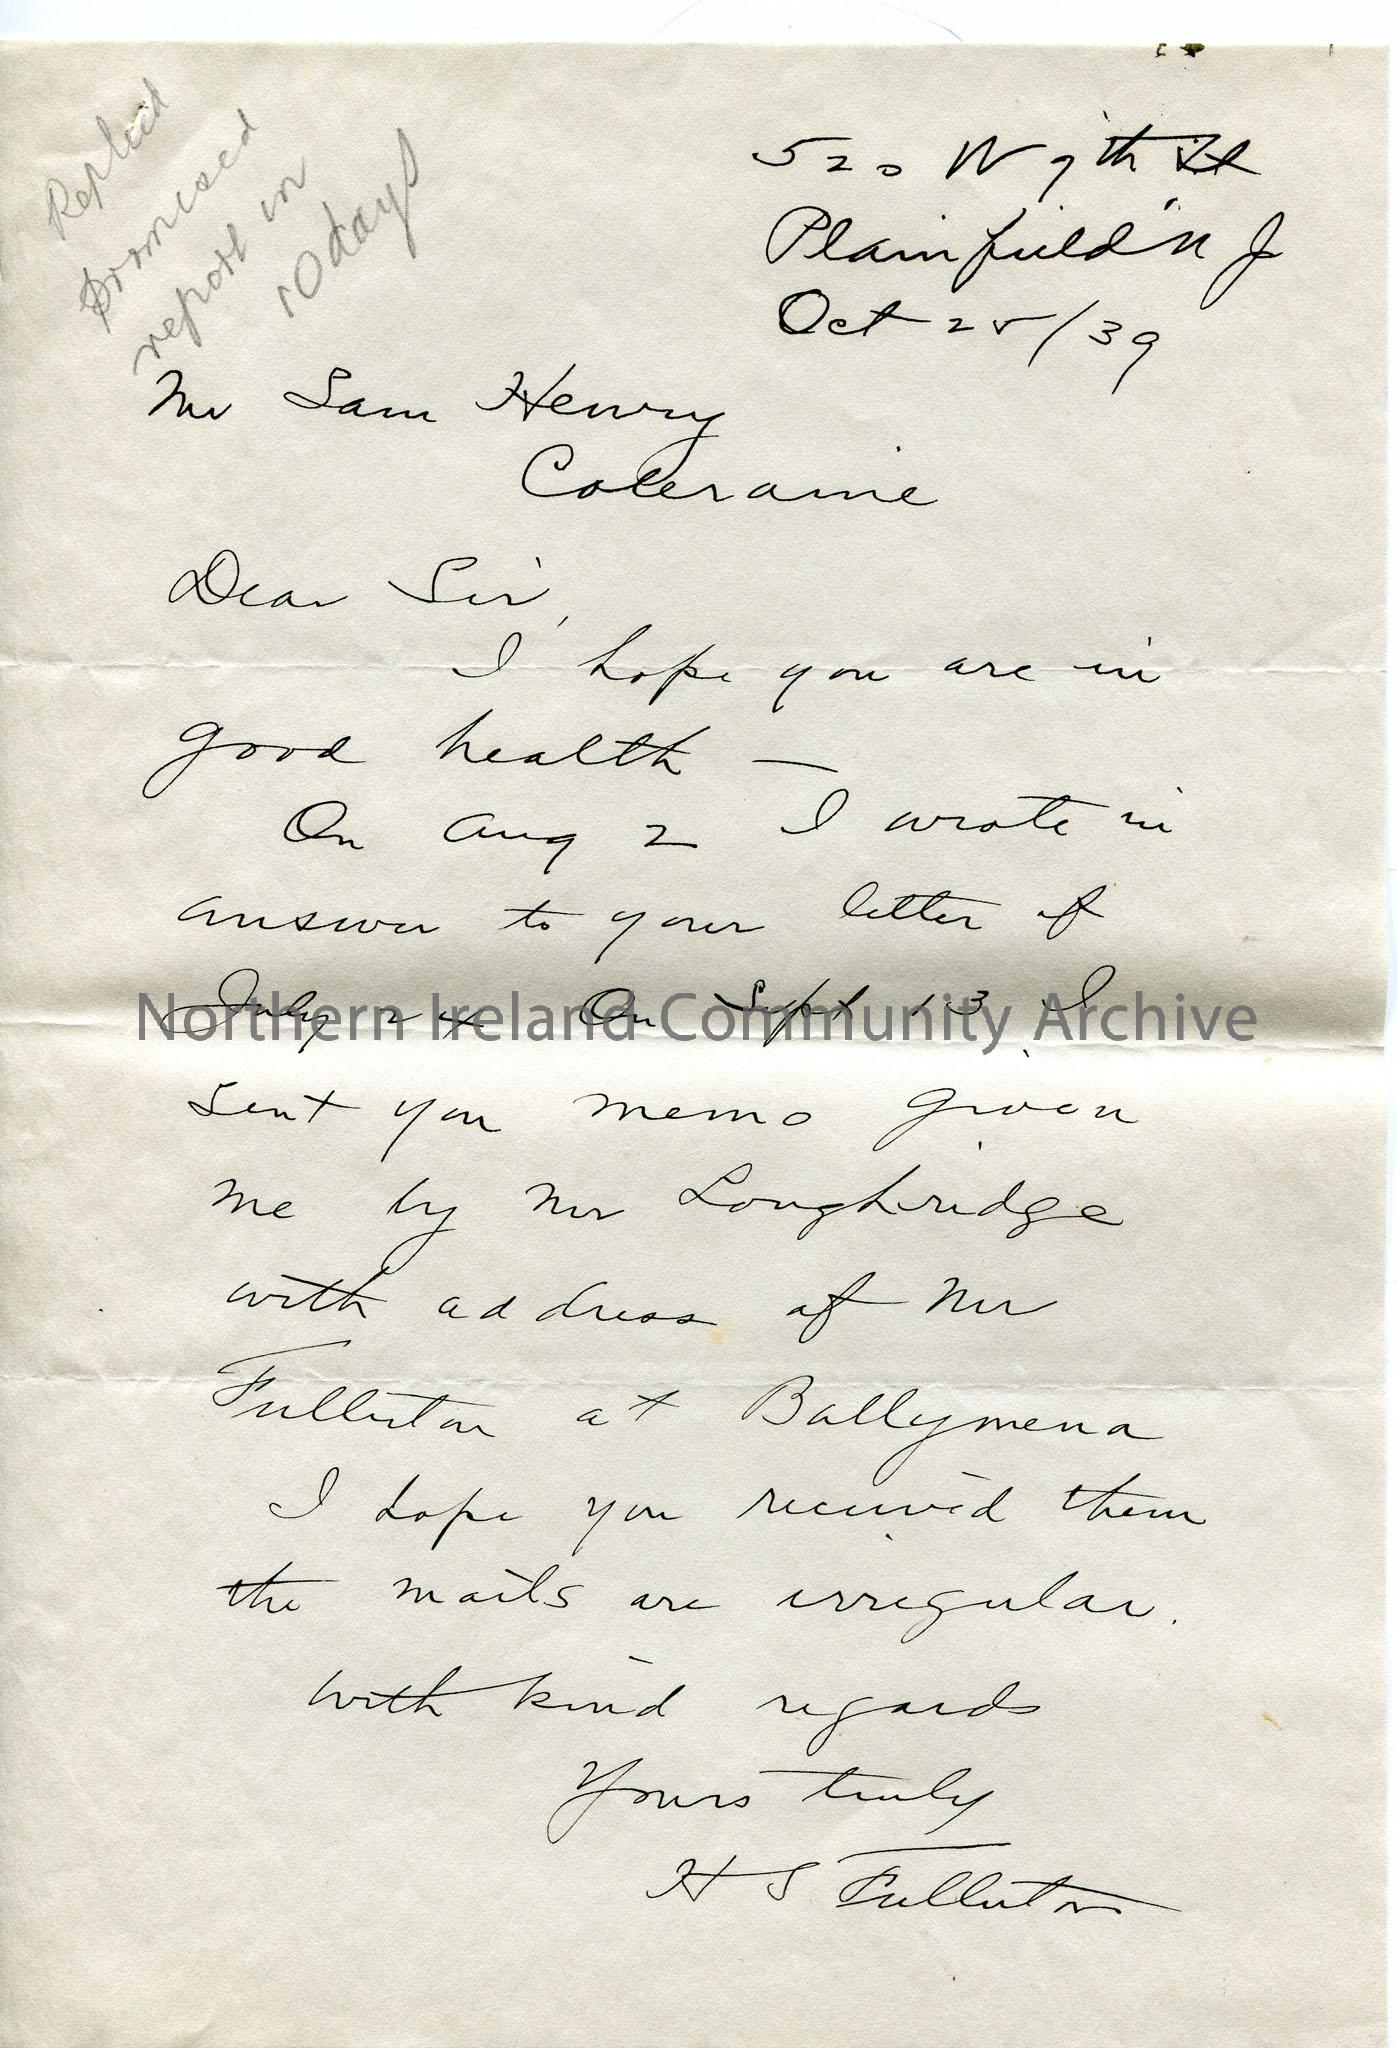 Replied
promised
report in
10 days
520 W 7th St
Plainfield N J
Oct 25/39
Mr Sam Henry
Coleraine
Dear Sir,
I hope you are in
good health —
On Aug 2 I wrote in
answer to your letter of
July 24 On Sept 13 I
sent you memo given
me by Mr Loughridge
with address of Mr
Fullerton at Ballymena
I hope you received them
the mails are irregular.
with kind regards
Yours truly
H S Fullerton
Northern Ireland Community Archive